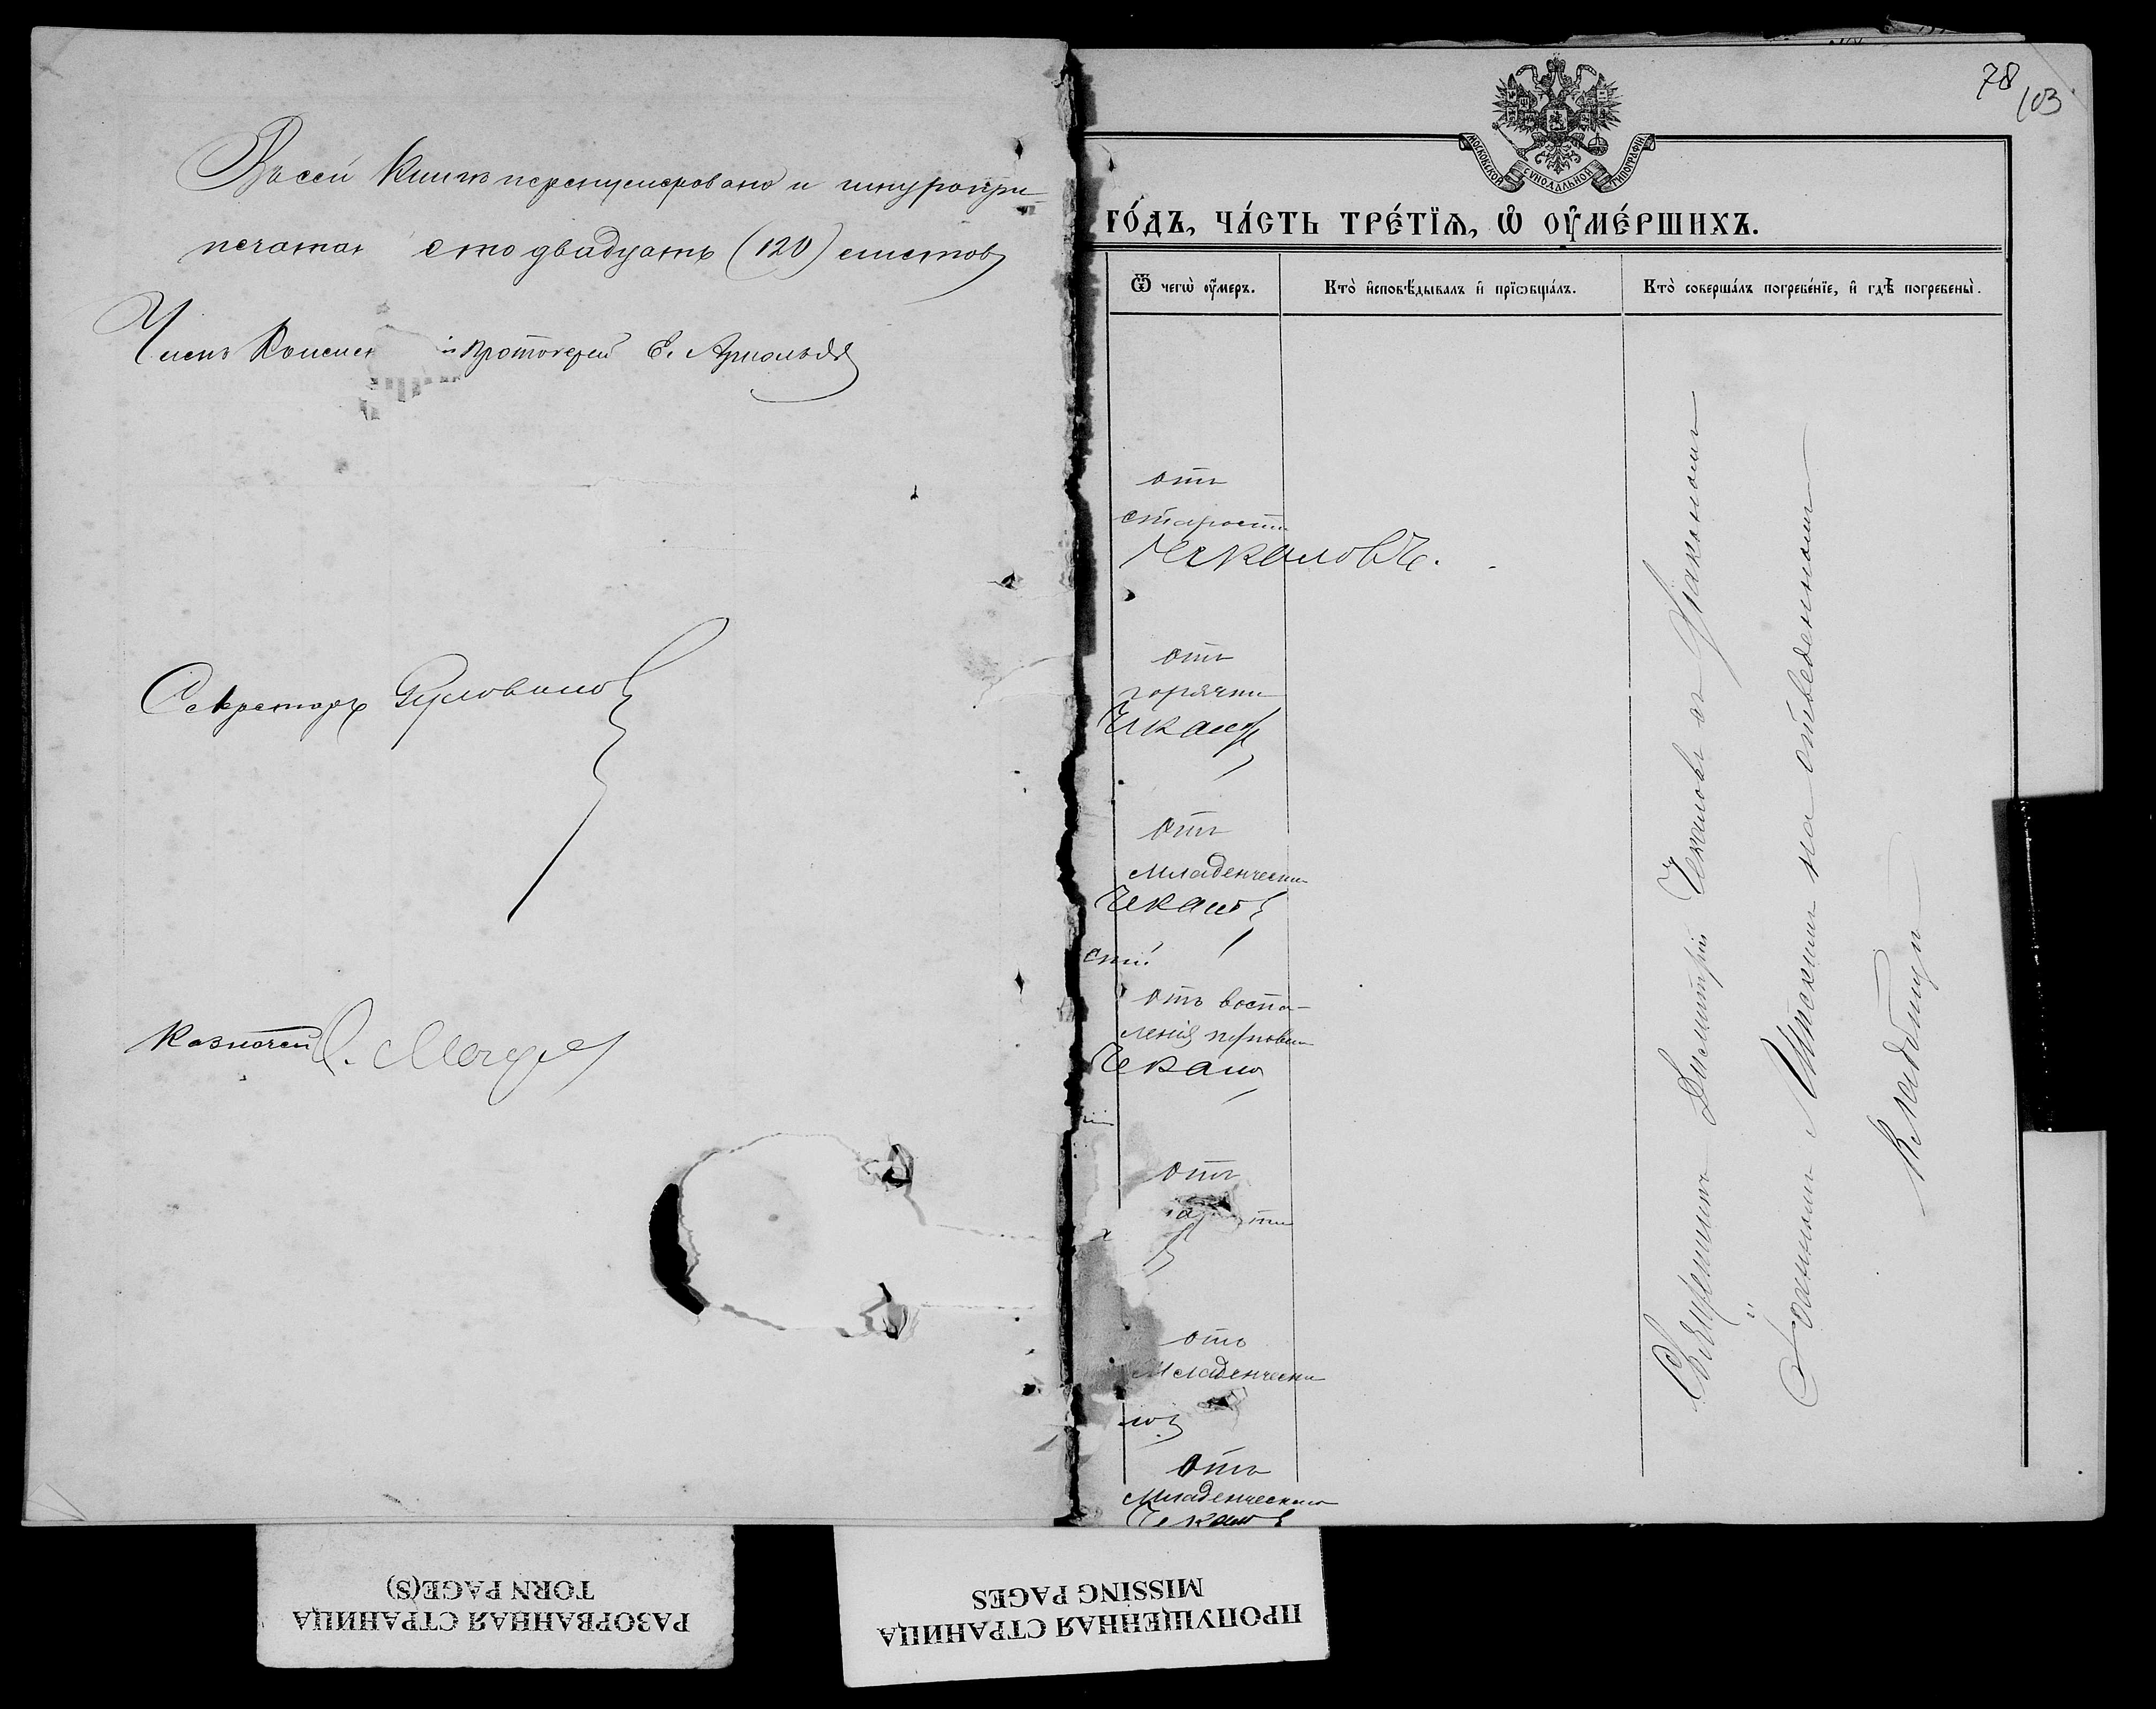 Въ сей книгѣ перенумеровано и шнуропри-
печатан сто двадцать (120) листовъ
Членъ Консис й Протоіерей Е.
Секретарь
Казначей
78
103
МОСКОВСКОЙ СѴНОДАЛЬНОЙ ТИПОГРАФІИ
ГО́ДЪ, ЧА́СТЬ ТРЕ́ТЇѦ, Ѽ ОУ҆МЕ́РШИХЪ.
Ѿ чегѡ̀ оу҆́меръ.
Кто̀ и҆сповѣ́дывалъ и҆ прїѡбща́лъ.
Кто̀ соверша́лъ погребе́нїе, и҆ гдѣ̀ погребены̀.
отъ
старости
Чекаловъ.
отъ
горячки
Чекалов
отъ
младенчески
Чекалов
сти
отъ воспа-
ленія
Чекало
отъ
отъ
младенчески
лов
отъ
младенческаго
Чекалов
Священникъ Димитрій Чекаловъ съ Діакономъ
Іоанномъ на отведенномъ
кладбищѣ
РАЗОРВАННАЯ СТРАНИЦА
TORN PAGE(S)
ПРОПУЩЕННАЯ СТРАНИЦА
MISSING PAGES